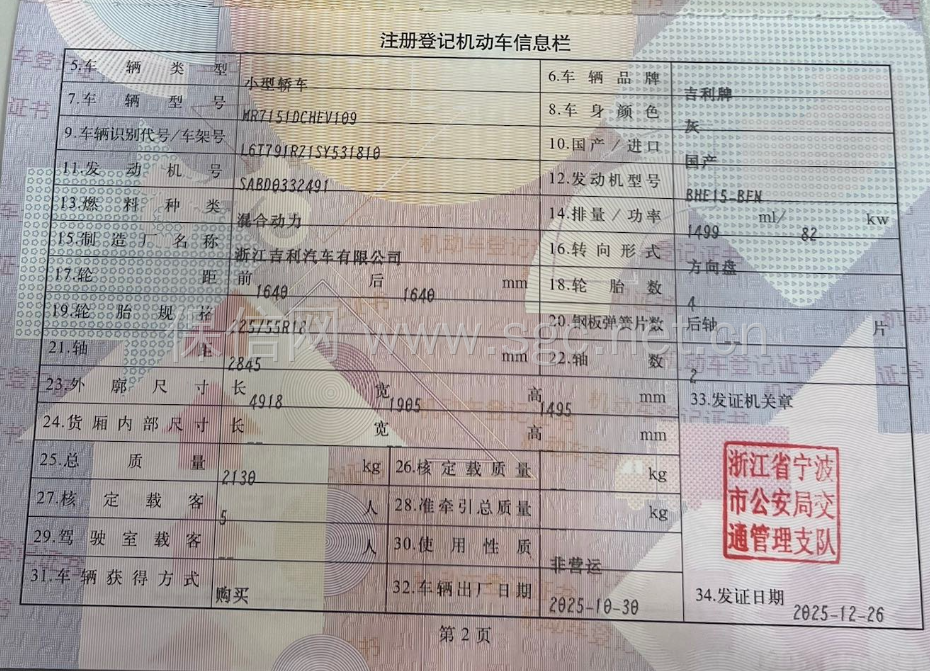 注册登记机动车信息栏
5.车辆类型 小型轿车 6.车辆品牌 吉利牌
7.车辆型号 MR7151DCHEV109 8.车身颜色 灰
9.车辆识别代号/车架号 L6T791RZ1SY531810 10.国产/进口 国产
11.发动机号 SABD0332491 12.发动机型号 BHE15-BFN
13.燃料种类 混合动力 14.排量/功率 1499 ml/ 82 kw
15.制造厂名称 浙江吉利汽车有限公司 16.转向形式 方向盘
17.轮距 前 1640 后 1640 mm 18.轮胎数 4
19.轮胎规格 225/55R18 20.钢板弹簧片数 后轴 片
21.轴距 2845 mm 22.轴数 2
23.外廓尺寸 长 4918 宽 1905 高 1495 mm 33.发证机关章
24.货厢内部尺寸 长 -- 宽 高 mm
浙江省宁波
市公安局交
通管理支队
25.总质量 2130 kg 26.核定载质量 kg
27.核定载客 5 人 28.准牵引总质量 kg
29.驾驶室载客 -- 人 30.使用性质 非营运
31.车辆获得方式 购买 32.车辆出厂日期 2025-10-30 34.发证日期 2025-12-26
第2页
保倍网 www.sgc.net.cn